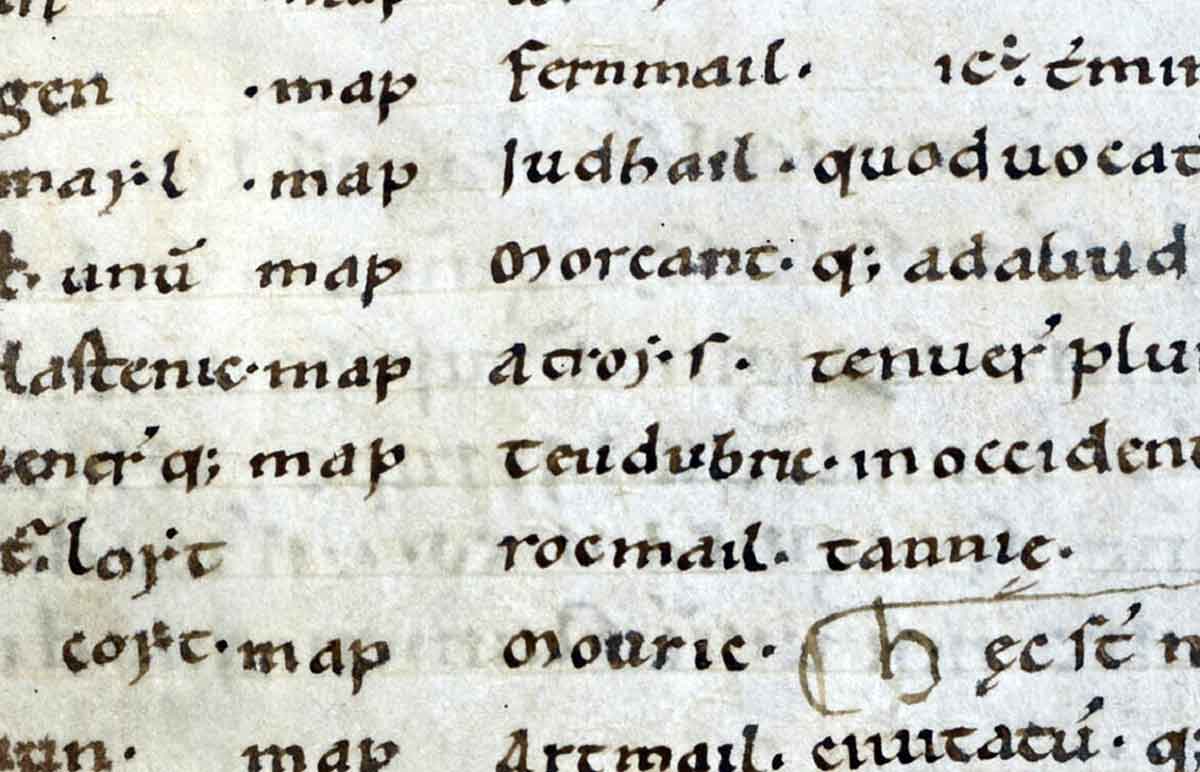 gen · map fernmail · ic: t̄min
mayl · map Judhail · quoduocat
unū map Morcant · q; adaliud
lastenic · map Atroys · tenuer̄ plu
ener̄ q; map teudubric · in occident
loyt rocmail · tannię ·
coyt · map Mouric · Hęc st̄ n
un · map Artmail · ciuitatū · q;